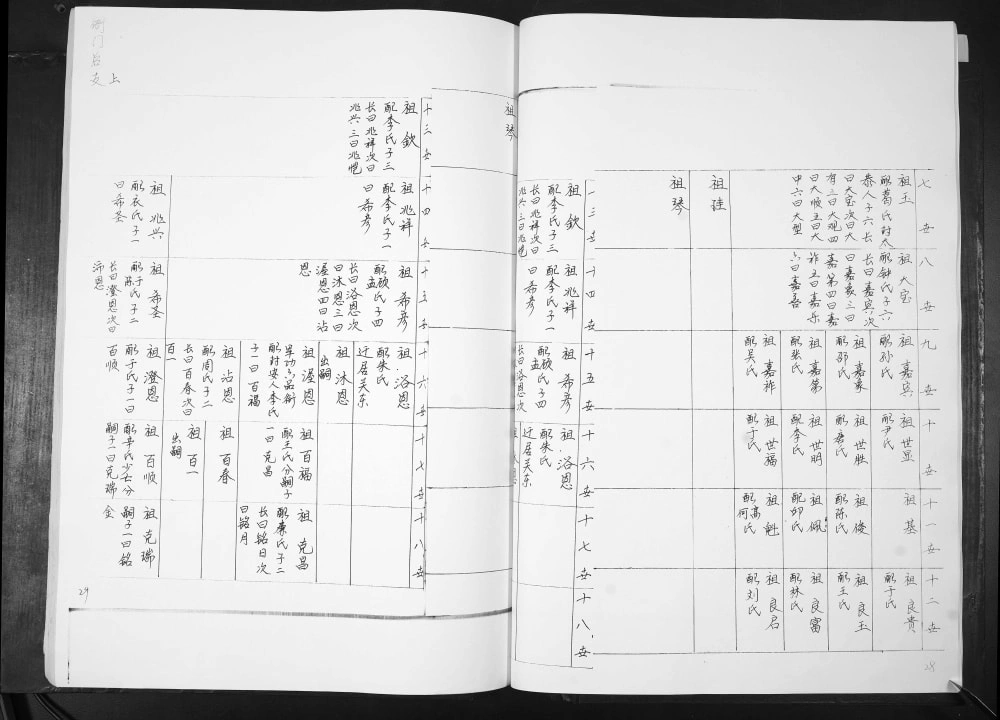 七世
祖玉
配葛氏封太
恭人子六长
曰大宝次曰大
有三曰大观四
曰大顺五曰大
中六曰大型
祖珪
祖琴
八世
祖大宝
配钟氏子六
长曰嘉宾次
曰嘉豪三曰
嘉第四曰嘉
祚五曰嘉乐
六曰嘉善
九世
祖嘉宾
配孙氏
祖嘉豪
配邵氏
祖嘉第
配张氏
祖嘉祚
配吴氏
十世
祖世显
配尹氏
祖世胜
配唐氏
祖世明
配李氏
祖世福
配于氏
十一世
祖基
祖俊
配陈氏
祖佩
配邹氏
祖魁
配高氏
何
十二世
祖良贵
配于氏
祖良玉
配王氏
祖良富
配林氏
祖良君
配刘氏
28
祖琴
十三世
祖钦
配李氏子三
长曰兆祥次曰
兆兴三曰兆恺
十四世
祖兆祥
配李氏子一
曰希彦
十五世
祖希彦
配硕氏子四
孟
长曰洛恩次
十六世
祖洛恩
配朱氏
迁居关东
十七世
十八世
上
十三世
祖钦
配李氏子三
长曰兆祥次曰
兆兴三曰兆恺
十四世
祖兆祥
配李氏子一
曰希彦
祖兆兴
配衣氏子一
曰希圣
十五世
祖希彦
配硕氏子四
孟
长曰洛恩次
曰沐恩三曰
渥恩四曰沾
恩
祖希圣
配于氏子二
陈
长曰澄恩次曰
沛恩
十六世
祖洛恩
配朱氏
迁居关东
祖沐恩
出嗣
祖渥恩
军功六品衔
配封安人李氏
子一曰百福
祖沾恩
配周氏子二
长曰百春次曰
百一
祖澄恩
配于氏子一曰
百顺
十七世
祖百福
配王氏分嗣子
一曰克昌
祖百春
祖百一
出嗣
祖百顺
配辛氏少亡分
嗣子一曰克瑞
十八世
祖克昌
配康氏子二
长曰铭日次
曰铭月
祖克瑞
嗣子一曰铭
金
29